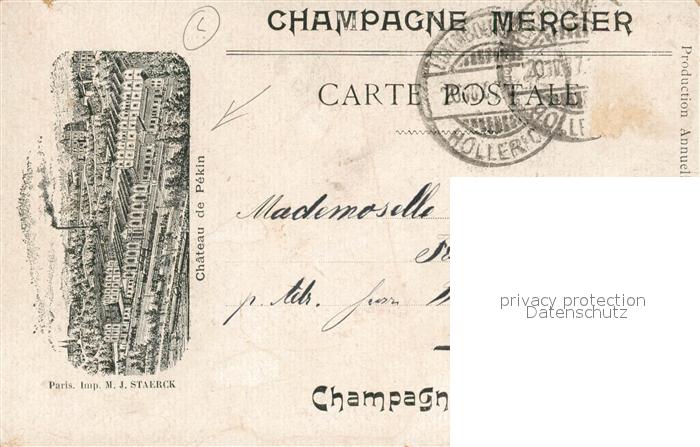 CHAMPAGNE MERCIER
CARTE POSTALE
Production Annuell
Château de Pékin
Mademoselle
p. Adr. Herrn
privacy protection
Datenschutz
Paris. Imp. M. J. STAERCK
Champagn